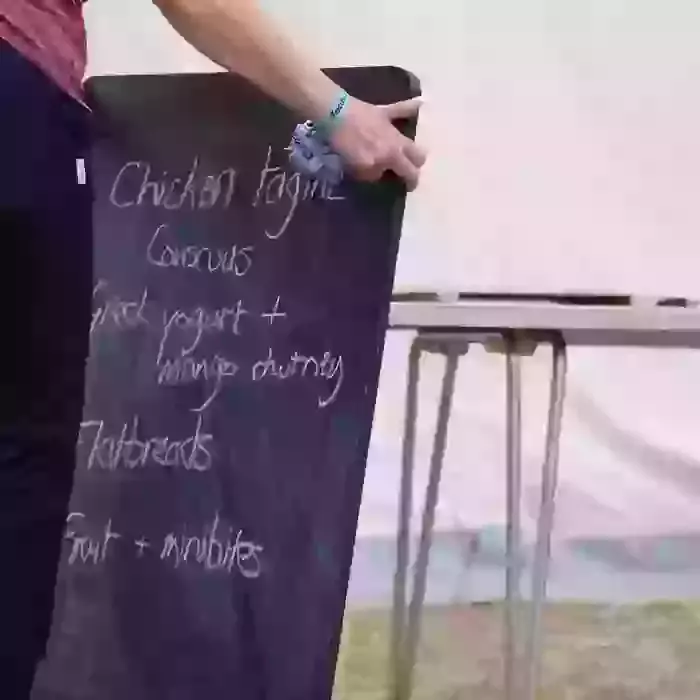 Chicken tagine
Couscous
Greek yogurt +
mango chutney
Flatbreads
Fruit + minibites